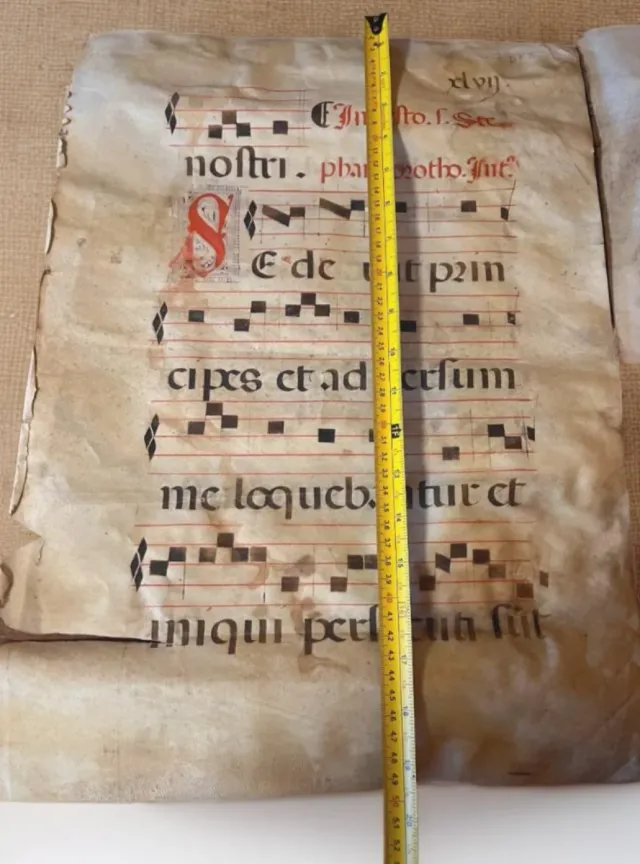 xlvij.
In festo. s. Ste
nostri. phani protho. Int.
SEderunt prin
cipes et adversum
me loquebantur et
iniqui persecuti sūt